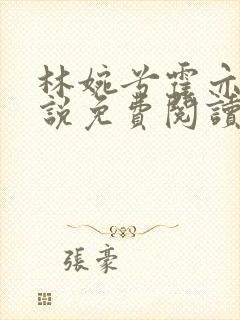 林婉兮霍亦
說免費閱讀
張豪